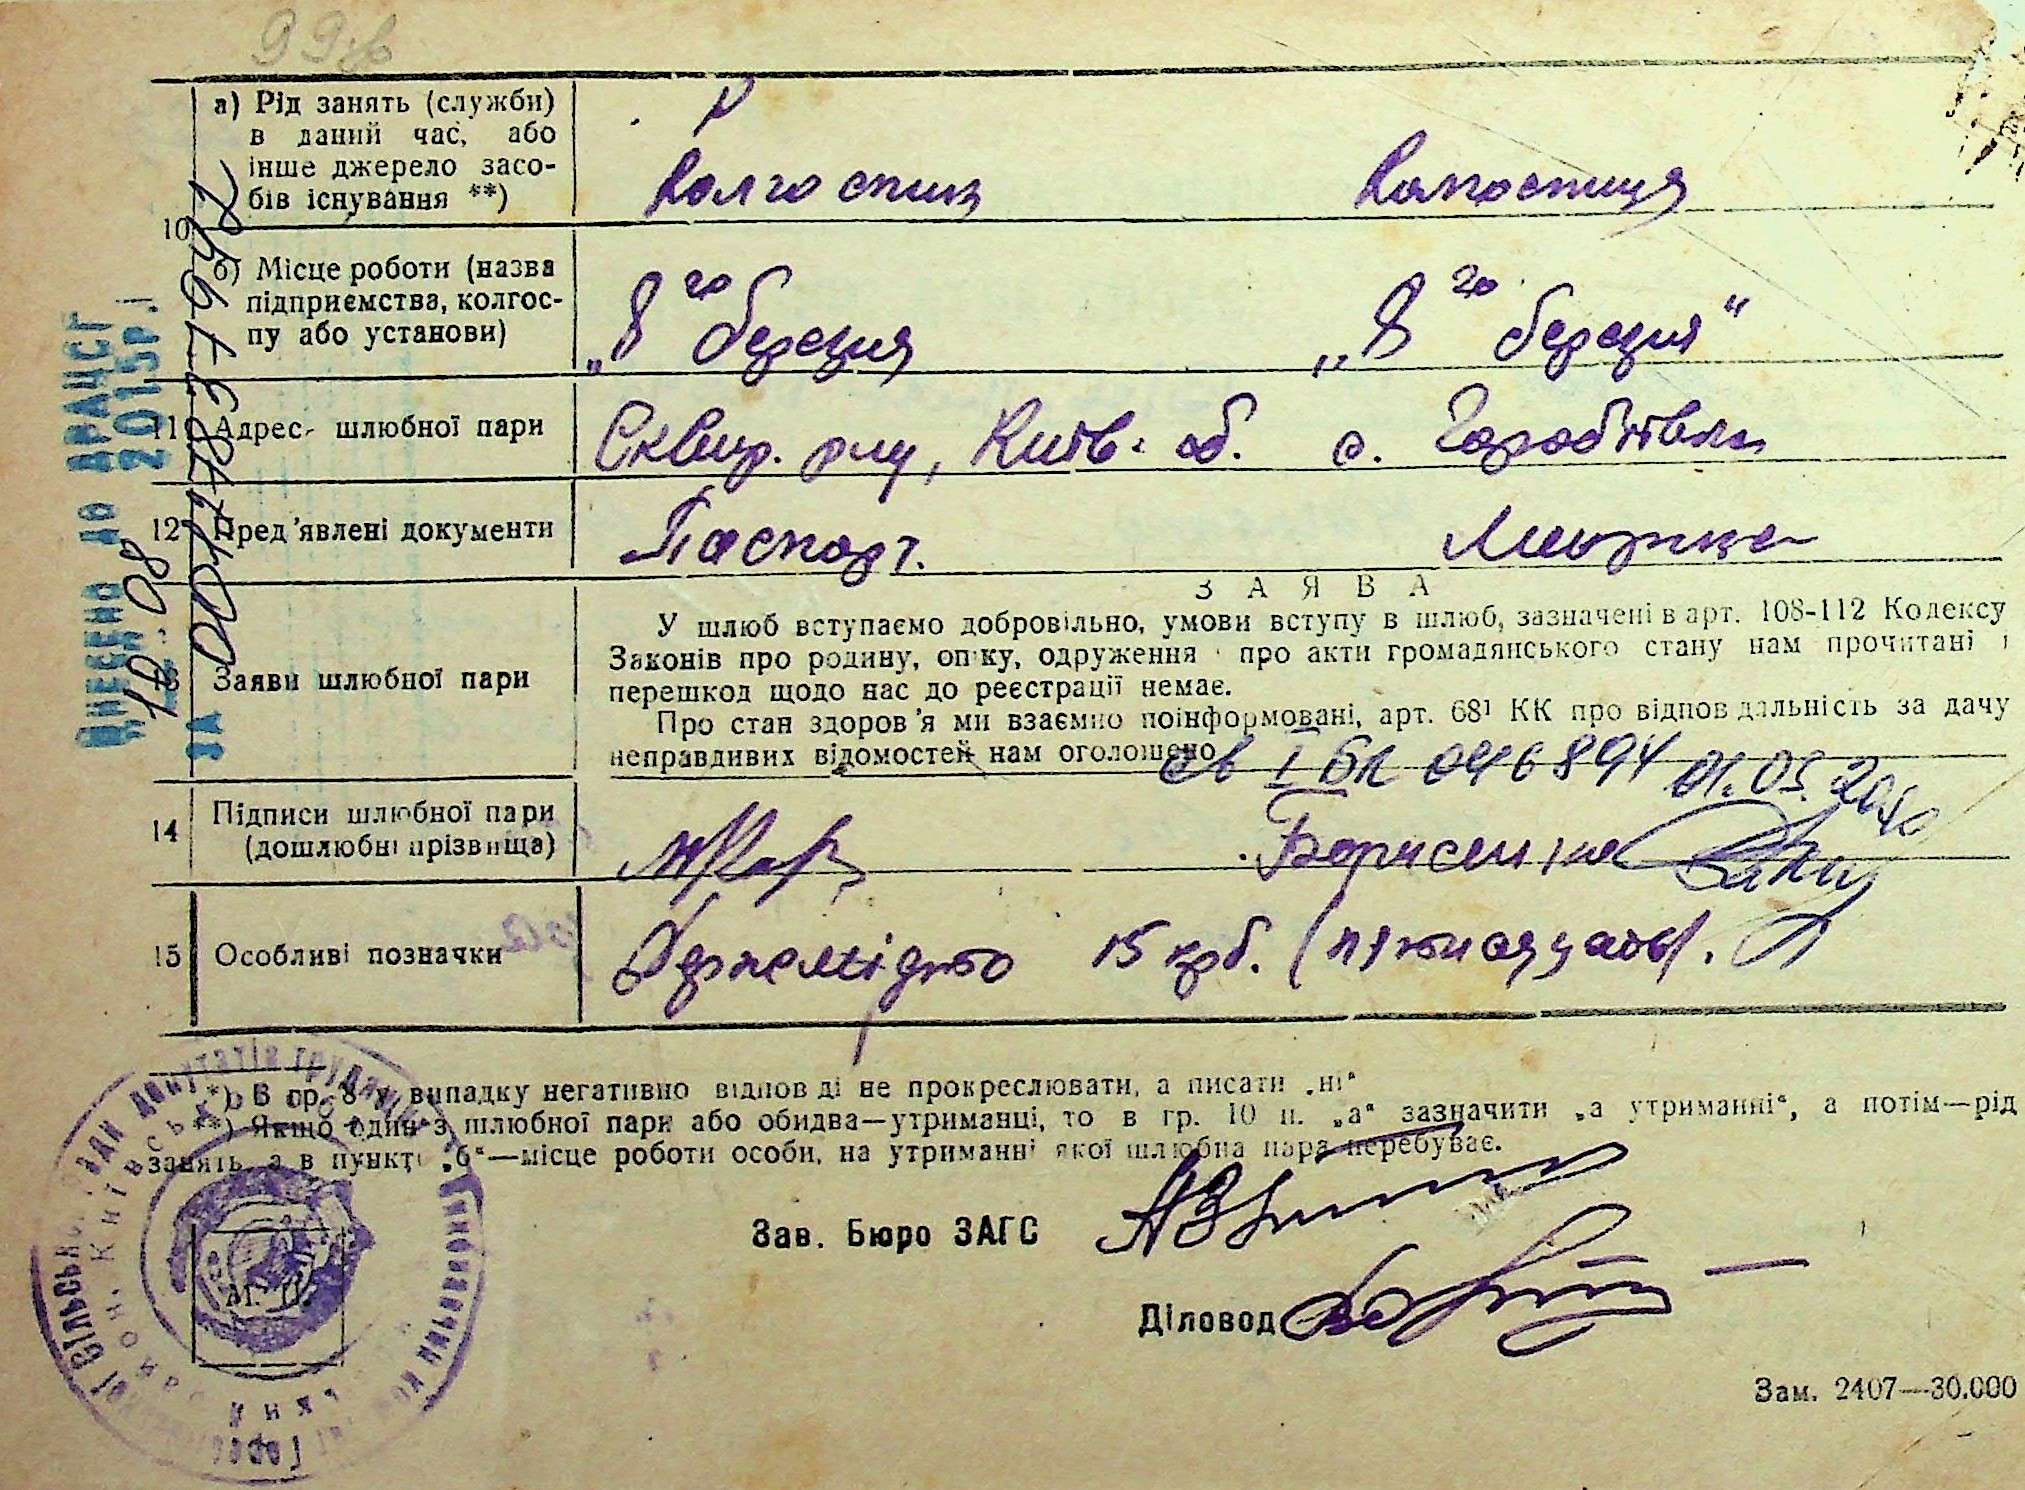 99зв
а) Рід занять (служби)
в даний час, або
інше джерело засо-
бів існування **)
Колгоспник
Колгоспниця
10
б) Місце роботи (назва
підприємства, колгос-
пу або установи)
„8го березня
„8го березня"
11 Адрес шлюбної пари
Сквир. р-ну, Київ. об. с. Горобіївка
12 Пред'явлені документи
Паспорт.
13 Заяви шлюбної пари
ЗАЯВА
У шлюб вступаємо добровільно, умови вступу в шлюб, зазначені в арт. 108-112 Кодексу
Законів про родину, опіку, одруження про акти громадянського стану нам прочитані і
перешкод щодо нас до реєстрації немає.
Про стан здоров'я ми взаємно поінформовані, арт. 68¹ КК про відповідальність за дачу
неправдивих відомостей нам оголошено
св I БК 046894 01.03.
14 Підписи шлюбної пари
(дошлюбні прізвища)
Борисенко
15 Особливі позначки
15 крб. (п'ятнадцять).
*) В гр. 8 у випадку негативно відповіді не прокреслювати, а писати „ні"
**) Якщо один з шлюбної пари або обидва—утриманці, то в гр. 10 п. „а" зазначити „а утриманні", а потім—рід
занять, а в пункті „б"—місце роботи особи, на утриманні якої шлюбна пара перебуває.
Зав. Бюро ЗАГС
Діловод
М. П.
Зам. 2407—30.000
Внесено до ДРАЦСГ
„10" 08 2015р.
ЗА 0011788371942